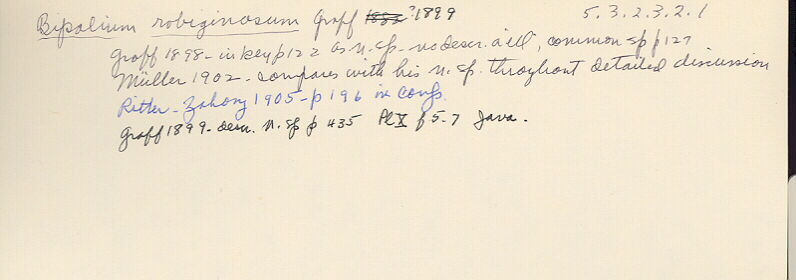 Bipalium robiginosum Graff 1899 5.3.2.3.2.1
Graff 1898 - in key p122 as n. sp. - no descr. a'ell, common sp p127
Müller 1902 - compares with his n. sp. throughout detailed discussion
Ritter-Zahony 1905 - p196 in comp.
Graff 1899 - descr. n. sp p 435 Pl X f 5-7 Java.